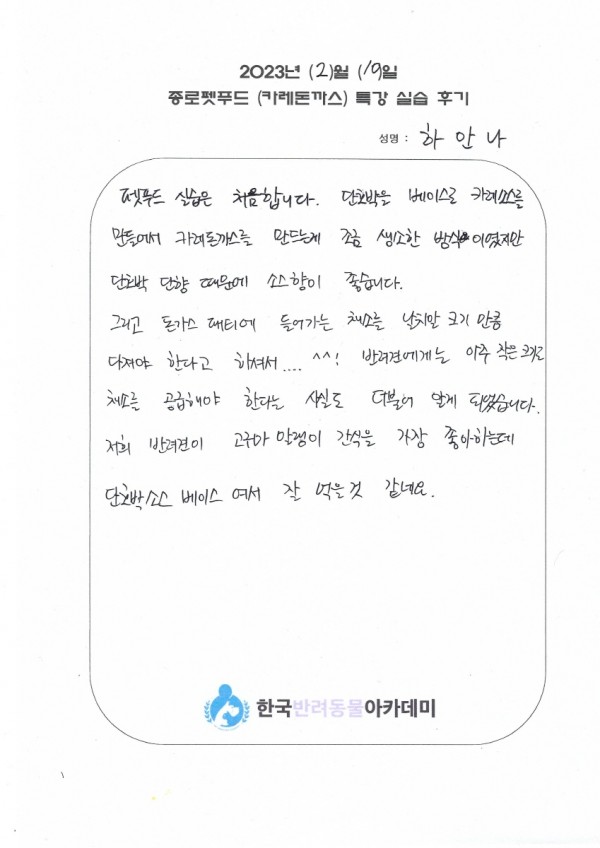 2023년 (2)월 (19일
종로펫푸드 (카레돈까스) 특강 실습 후기
성명 : 하안나
펫푸드 실습은 처음합니다. 단호박을 베이스로 카레소스를
만들에서 카레돈까스를 만드는게 조금 생소한 방식이였지만
단호박 단향 때문에 소스향이 좋습니다.
그리고 돈가스 패티에 들어가는 채소를 날치알 크기 만큼
다져야 한다고 하셔서.... ^^! 반려견에게는 아주 작은 크기로
채소를 공급해야 한다는 사실도 더불어 알게 되었습니다.
저희 반려견이 고구마 말랭이 간식을 가장 좋아하는데
단호박소스 베이스 여서 잘 먹을것 같네요.
한국반려동물아카데미